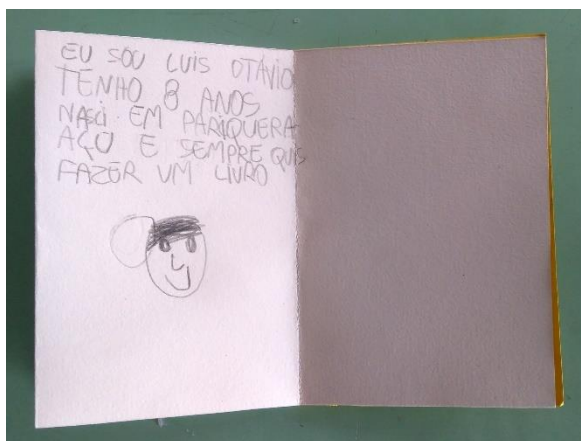 EU SOU LUIS OTÁVIO
TENHO 8 ANOS
NASCI EM PARIQUERA
AÇU E SEMPRE QUIS
FAZER UM LIVRO